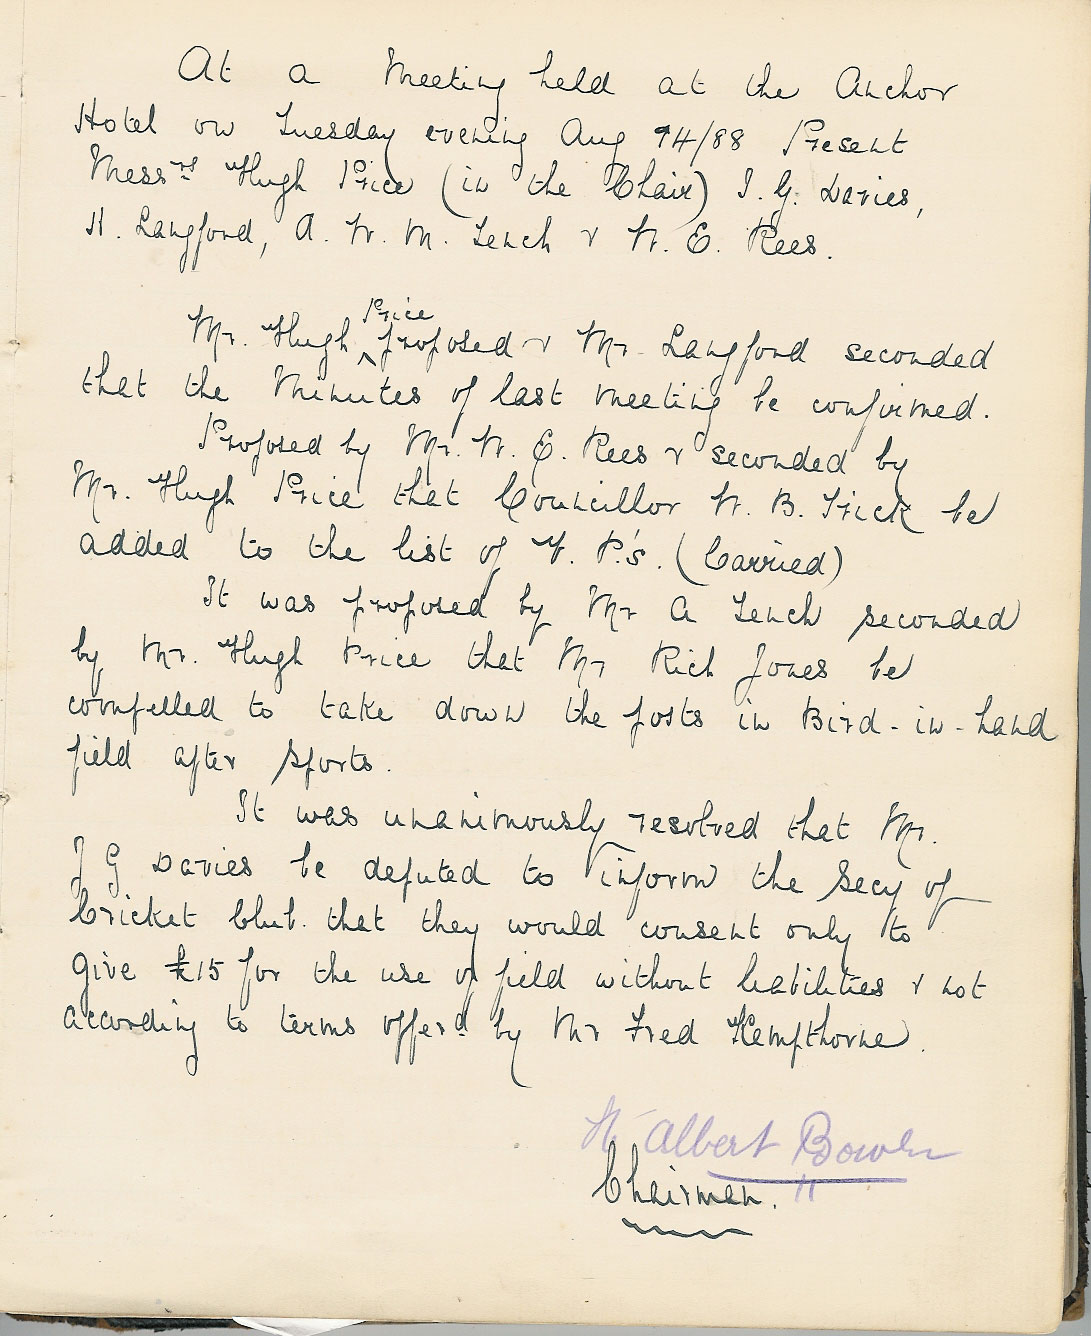 At a Meeting held at the Anchor
Hotel on Tuesday evening Aug 94/88 Present
Messrs Hugh Price (in the Chair) J. G. Davies,
H. Langford, A. W. M. Lench & W. E. Rees.
Mr. Hugh Price proposed & Mr. Langford seconded
that the Minutes of last meeting be confirmed.
Proposed by Mr. W. E. Rees & seconded by
Mr. Hugh Price that Councillor W. B. Trick be
added to the list of V. P.'s. (Carried)
It was proposed by Mr A Lench seconded
by Mr. Hugh Price that Mr Rich Jones be
compelled to take down the posts in Bird-in-hand
field after sports.
It was unanimously resolved that Mr.
J G Davies be deputed to inform the Secy of
Cricket Club. that they would consent only to
give £15 for the use of field without liabilities & not
according to terms offerd by Mr Fred Kempthorne.
W Albert Bowen
Chairman.